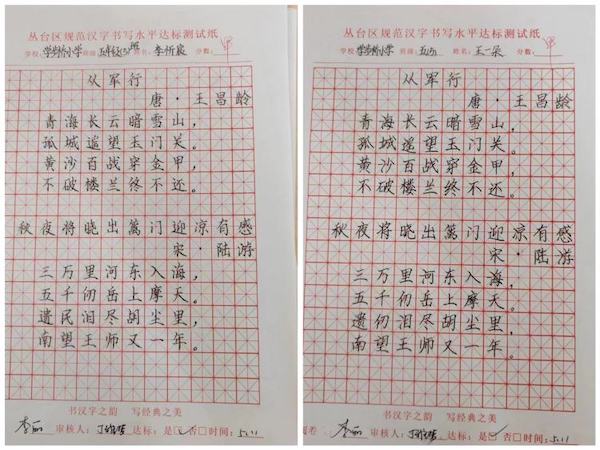 丛台区规范汉字书写水平达标测试纸
学校:学步桥小学 班级 五年级(5)班 姓名: 分数: 甲
从军行
唐·王昌龄
青海长云暗雪山,
孤城遥望玉门关。
黄沙百战穿金甲,
不破楼兰终不还。
秋夜将晓出篱门迎凉有感
宋·陆游
三万里河东入海,
五千仞岳上摩天。
遗民泪尽胡尘里,
南望王师又一年。
书汉字之韵 写经典之美
李丽 审核人: 达标: 是☑否□时间: 5.11
丛台区规范汉字书写水平达标测试纸
学校: 学步桥小学 班级: 五(5) 姓名: 王一朵 分数: 甲
从军行
唐·王昌龄
青海长云暗雪山,
孤城遥望玉门关。
黄沙百战穿金甲,
不破楼兰终不还。
秋夜将晓出篱门迎凉有感
宋·陆游
三万里河东入海,
五千仞岳上摩天。
遗仞泪尽胡尘里,
南望王师又一年。
书汉字之韵 写经典之美
阅卷: 李丽 审核人: 达标: 是☑ 否□ 时间: 5.11